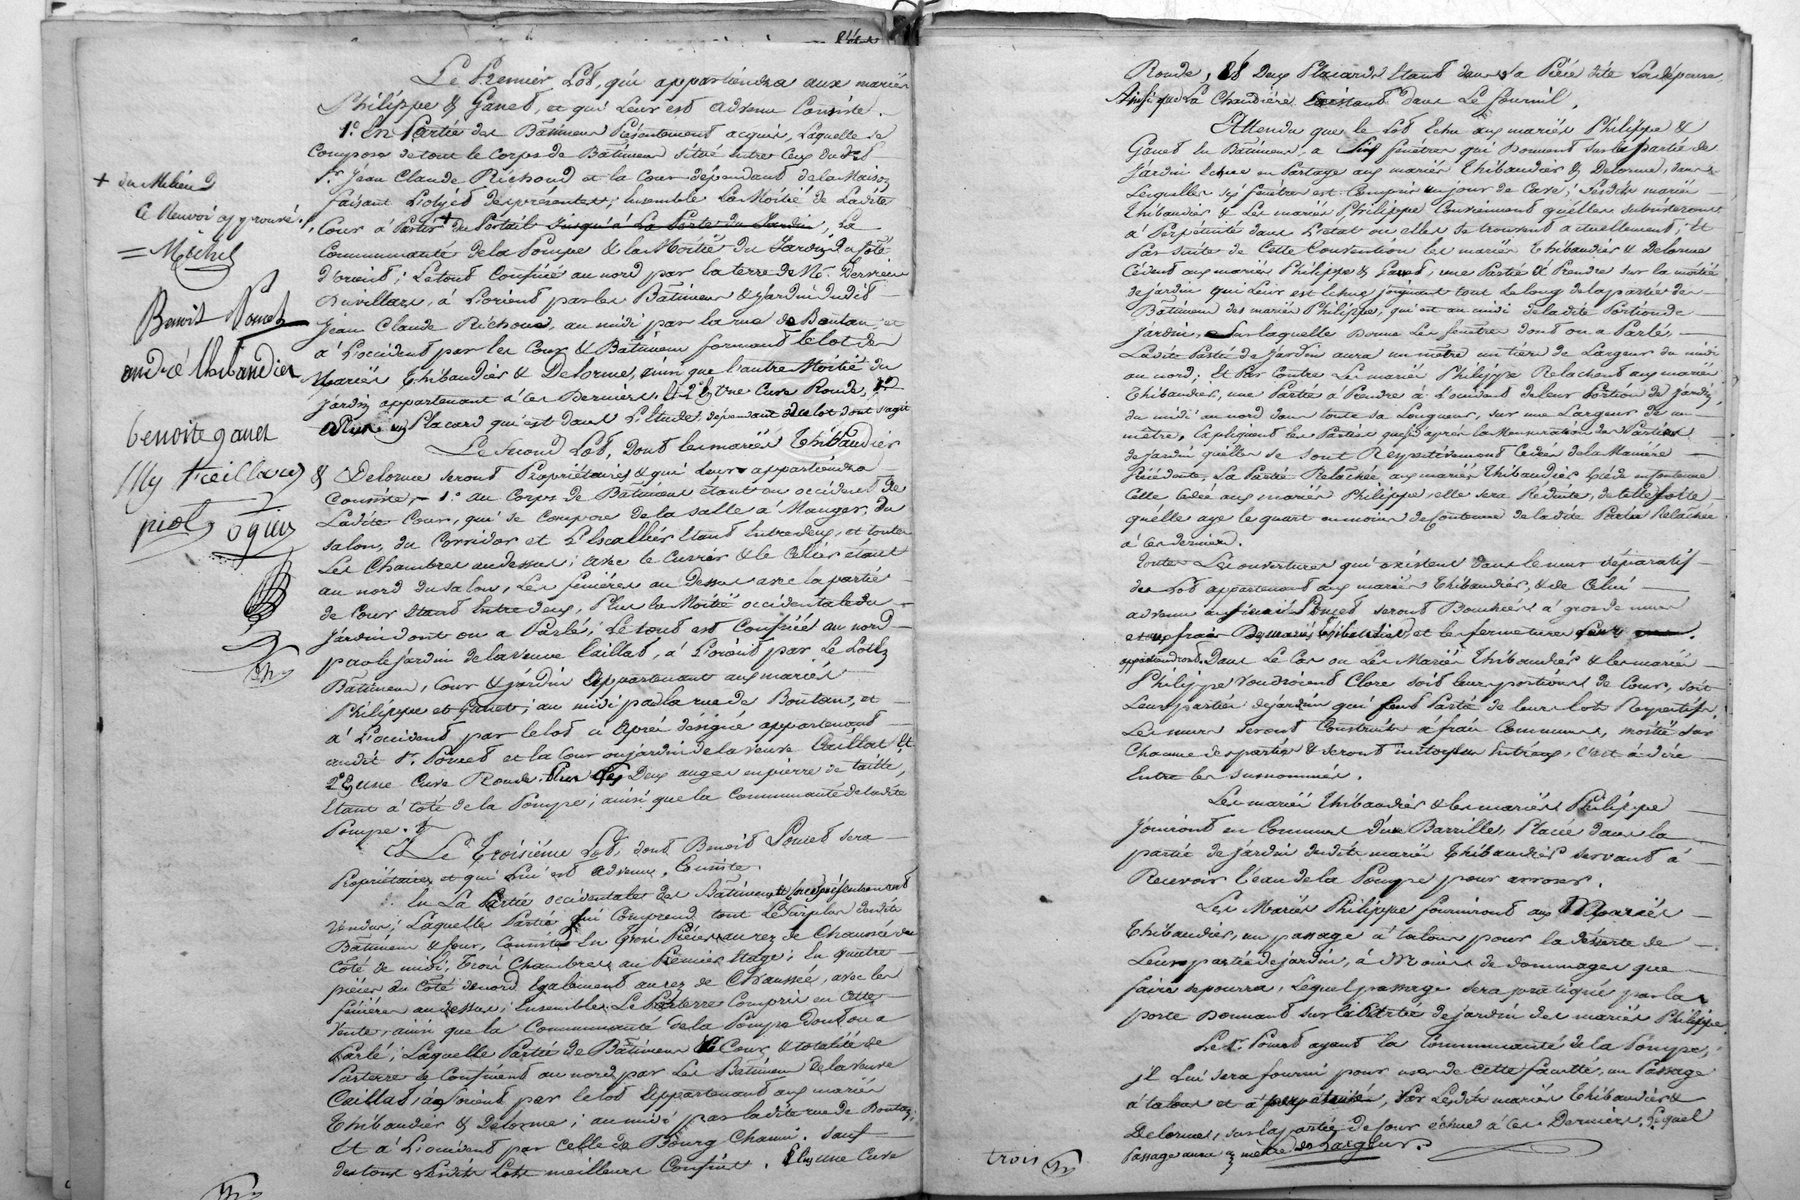 Le Premier Lot, qui appartiendra aux mariés
Philippe & Ganet, et qui leur est advenu Consiste.
1.° En Partie des Bâtimens Présentement acquis, Laquelle se
Compose de tout le Corps de Bâtimens situé entre Ceux dudit
Sr. Jean Claude Richoud et la Cour dépendant de la Maison
faisant L'objet des présentes; Ensemble La Moitié de Ladite
Cour à Partir + du Portail jusqu'à La Porte du Jardin, La
Communauté de la Pompe & la Moitié du Jardin du Côté
d'orient; Le tout Confiné au nord par la terre de Mr.
Duvillars, à L'orient par les Bâtimens & jardin dudit
Jean Claude Richoud, au midi par la rue de Boutan, et
à L'occident par les Cour & Bâtimens formant le lot des
Mariés Thibaudier & Delorme, ainsi que l'autre Moitié du
jardin appartenant à Ces Derniers, et 2.° Une Cuve Ronde,
Placard qui est dans L'Etude, dépendant du lot dont s'agit
Le Second Lot, Dont les mariés Thibaudier
& Delorme seront Propriétaires & qui leur appartiendra
Consiste, 1.° au Corps de Bâtiment étant en occident de
Ladite Cour, qui se Compose de la salle à Manger, du
salon, du Corridor et L'Escallier Etant Entredeux, et toutes
Les Chambres audessus; avec le Cuvier & le Cellier étant
au nord du salon, Les feniéres au Dessus avec la partie
de Cour étant Entredeux, Plus la Moitié occidentale du
Jardin dont on a Parlé; Le tout est Confiné au nord
par le jardin de la veuve Caillat, à L'orient par Le Lot,
Bâtimens, Cour & jardin appartenant aux mariés
Philippe et Ganet; au midi par la rue de Boutan, et
à L'occident par le lot ci après désigné appartenant
audit Sr. Poncet et la Cour ou jardin de la veuve Caillat Et
2.° En une Cuve Ronde. Plus les Deux auges en pierre de taille,
Etant à Coté de la Pompe; ainsi que la Communauté de ladite
Pompe.
Le Troisiéme Lot, dont Benoit Poncet sera
Propriétaire et qui lui est advenu, Consiste
En La Partie occidentale des Bâtimens présentement
Vendus; Laquelle Partie qui Comprend tout Le
Bâtimens & four, Consiste En Trois Piéces au rez de Chaussée du
Côté de midi, Trois Chambres au Premier Etage; En quatre
piéces du Côté de nord Egalement au rez de Chaussée, avec les
feniéres audessus; Ensemble Le Parterre Compris en Cette
Vente, ainsi que la Communauté de la Pompe dont on a
Parlé; Laquelle Partie de Bâtimens Cour & totalité de
Parterre se Confinent au nord par Les Bâtimens de la veuve
Caillat, à L'orient par le lot appartenant aux mariés
Thibaudier & Delorme; au midi par ladite rue de Boutan;
Et à L'occident par Celle de Bourg Chanin. sauf
des tous Lesdits Lots meilleurs Confins. Plus une Cuve
+ du Milieu
Ce Renvoi approuvé.
= Michel
Benoit Poncet
andré thibaudier
benoite ganet
piol
Ronde, Et Deux Placards Etant dans La Piéce dite La dépense,
Ainsi que La Chaudiére Existant dans Le fournil.
Attendu que le Lot Echu aux mariés Philippe &
Ganet En Bâtimens, a six fenêtres qui Donnent sur la partie de
jardin Echue en Partage aux mariés Thibaudier & Delorme, dans
Lesquelles six fenêtres est Compris un jour de Cave; Lesdits mariés
Thibaudier & Les mariés Philippe Conviennent qu'elles subsisteront
à Perpétuité dans L'etat où elles se trouvent actuellement; Et
Par suite de Cette Convention les mariés Thibaudier & Delorme
Cédent aux mariés Philippe & Ganet, une Partie à Prendre sur la moitié
de jardin qui Leur est Echue, joignant tout Le long de la partie des
Bâtimens des mariés Philippe, qui est au midi de ladite Portion de
jardin, sur laquelle Donne Les fenêtres dont on a Parlé,
La dite Partie de jardin aura un mêtre un tiers de Largeur du midi
au nord; Et Par Contre Les mariés Philippe Relachent aux mariés
Thibaudier, une Partie à Prendre à L'occident de leur Portion de jardin,
du midi au nord dans toute sa Longueur, sur une Largeur de un
mêtre, Expliquent les Parties que si d'après la Mensuration des Parties
de jardin qu'elles se sont Respectivement Cédées de la Maniere
Précédente, La Partie Relachée aux mariés Thibaudier Excéde en Contenue
Celle Cédée aux mariés Philippe, elle sera Réduite, de telle sorte
qu'elle aye le quart en moins de Contenue de la dite Partie Relachée
à Ces derniers.
Toutes Les ouvertures qui existent dans le mur séparatif
des Lot appartenant aux mariés Thibaudier, & de Celui
advenu au sieur Poncet seront Bouchées à gros de mur
et aux frais Des mariés Thibaudier, et les fermetures leur
appartiendront. Dans Le Cas où Les Mariés Thibaudier & les mariés
Philippe voudroient Clore soit leurs portions de Cour, soit
Leurs parties de jardin qui font Partie de leurs lots Respectifs,
Les murs seront Construits à frais Communs, moitié sur
Chacune des parties & seront mitoyens Entr'eux, C'est à dire
Entre les susnommés.
Les mariés Thibaudier & les mariés Philippe
Jouiront en Commun d'une Barrille, Placée dans la
partie de jardin desdits mariés Thibaudier servant à
Recevoir L'eau de la Pompe pour arroser.
Les Mariés Philippe fourniront aux Mariés
Thibaudier, un passage à talons pour la déserte de
Leurs partie de jardin, à Moins de dommages que
faire se pourra, Lequel passage sera pratiqué par la
porte Donnant sur la Partie de jardin des mariés Philippe.
Le Sr. Poncet ayant la Communauté de la Pompe,
il Lui sera fourni pour user de Cette faculté, un Passage
à talons et à perpétuité, Par Lesdits mariés Thibaudier &
Delorme, sur la partie de Cour échue à Ces Derniers, Lequel
Passage aura un mêtre de Largeur.
trois